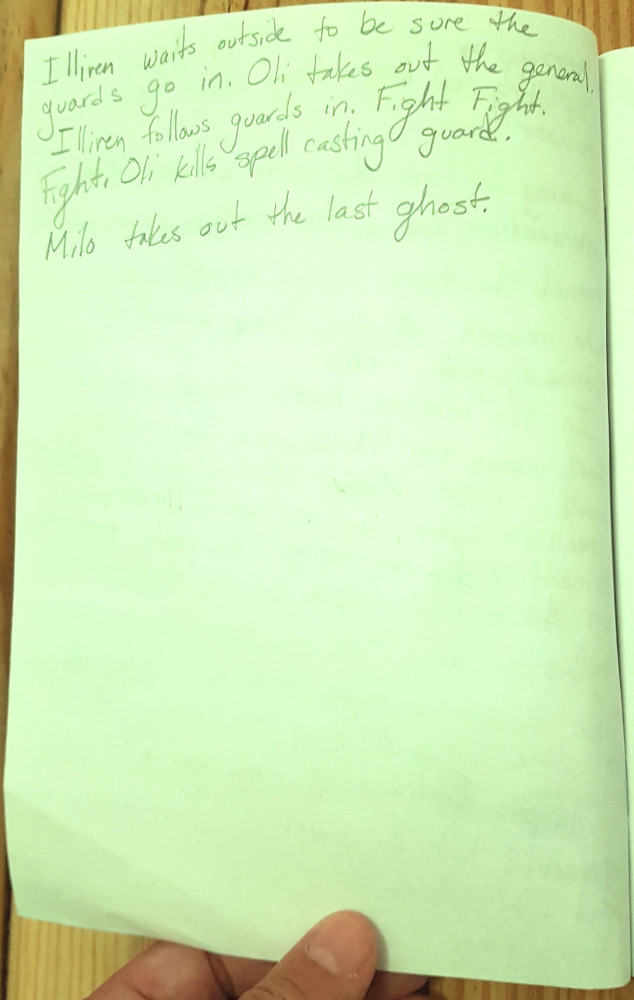 Illiren waits outside to be sure the
guards go in. Oli takes out the general.
Illiren follows guards in. Fight Fight.
Fight. Oli kills spell casting guard.
Milo takes out the last ghost.